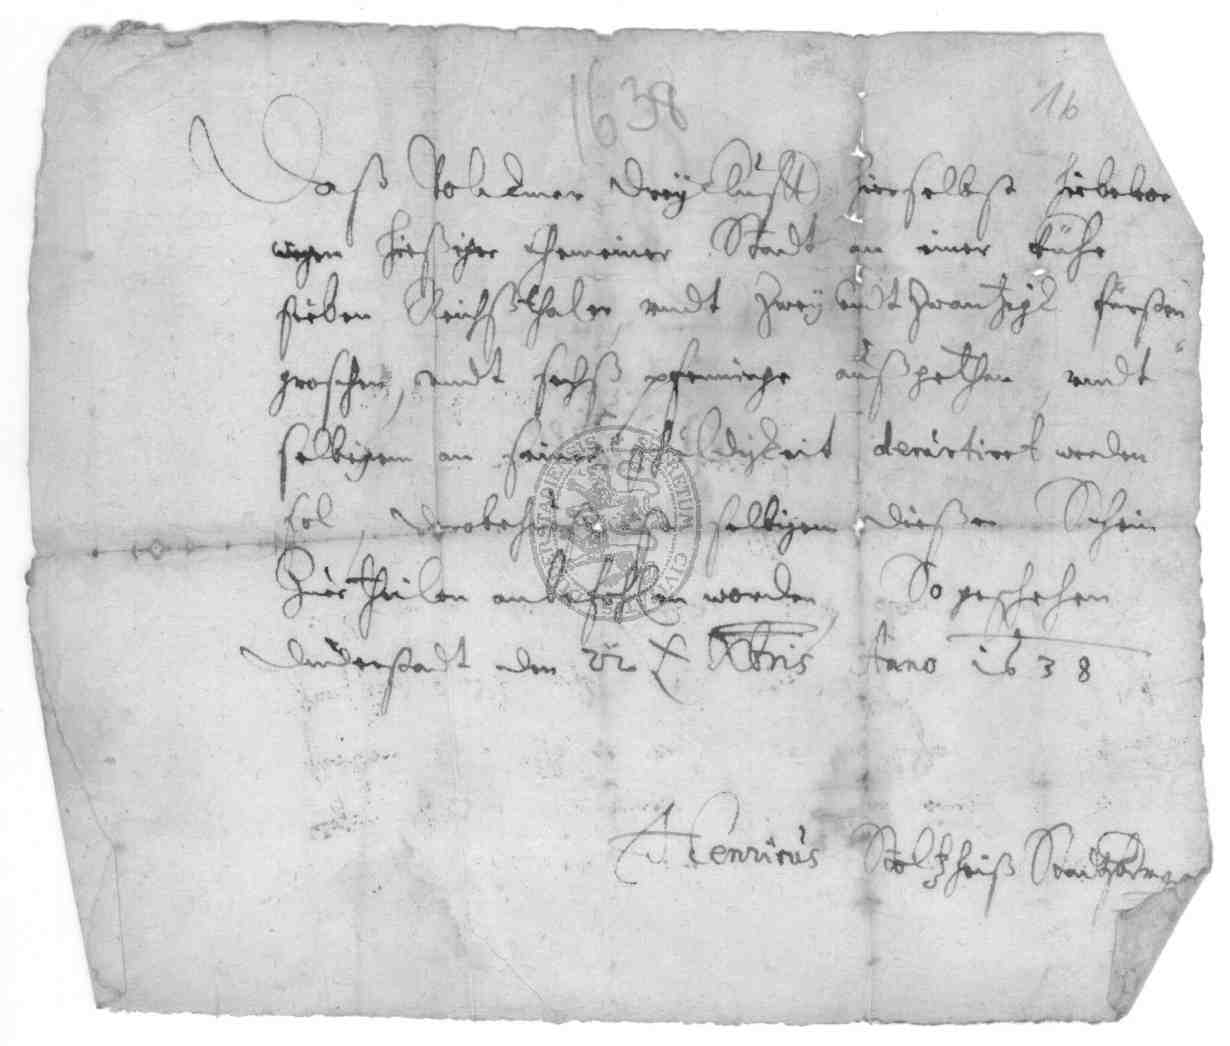 1638
16
Daß Volckmar hierselbst hiebevor
wegen hiesiger Gemeiner Stadt an einer Kühe
sieben Reichßthaler, undt Zwey undt Zwantzigk fürsten
groschen, undt sechß pfenninge außgethan, undt
selbigem an seiner schüldigkeit decurtirt werden
sol, selbigem dießer Schein
Zuertheilen anbefohlen worden, So geschehen
Duderstadt den 22 Xbris Anno 1638
Henricus Stoltzheiß